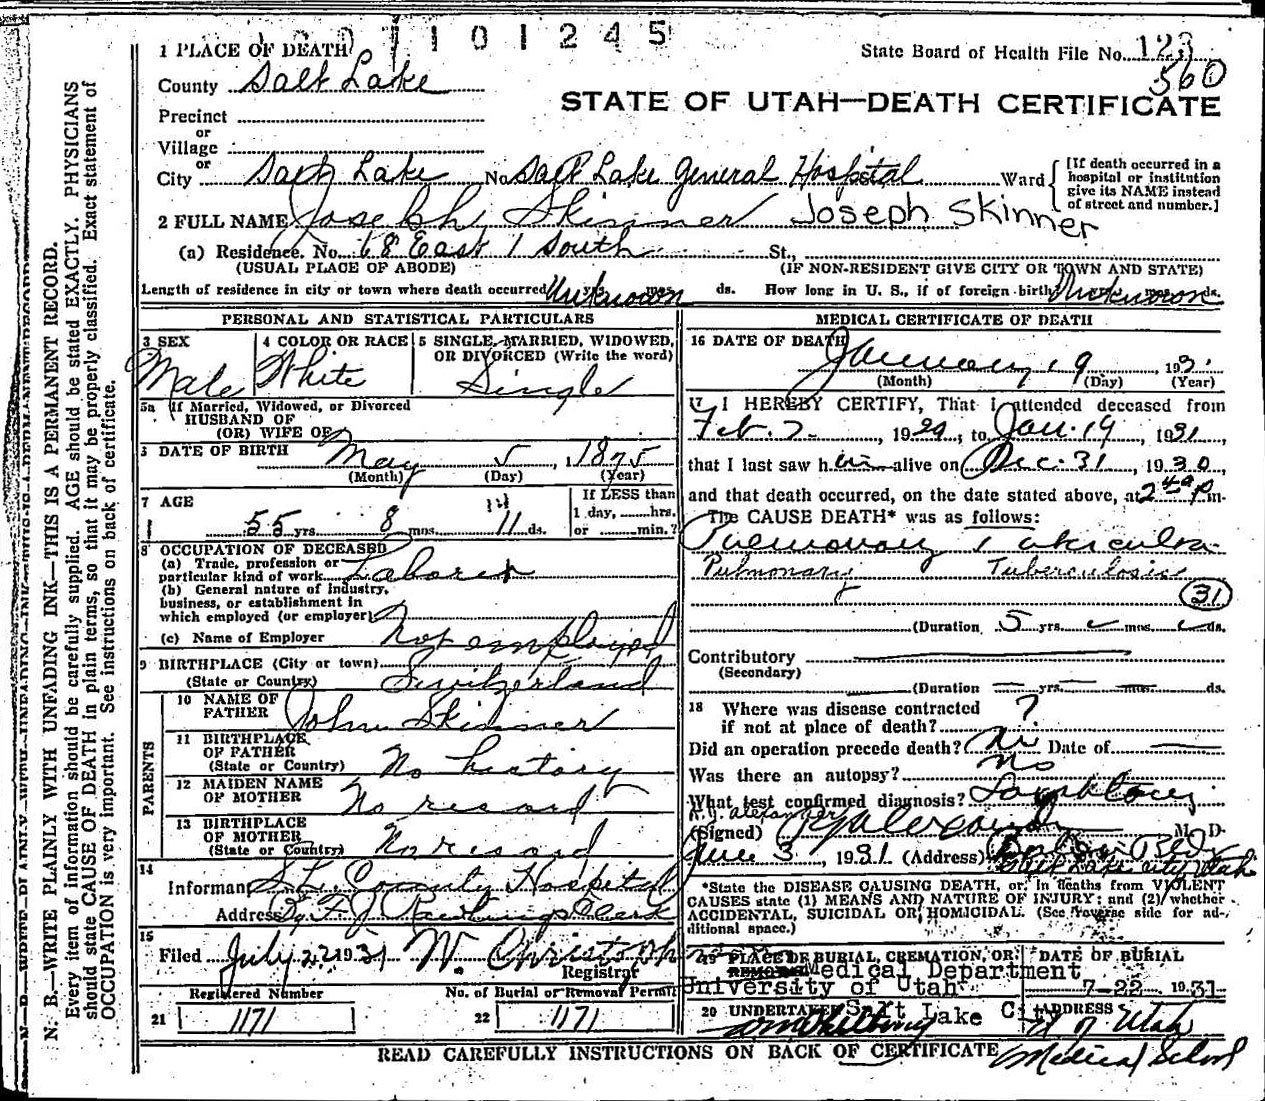 1101245
1 PLACE OF DEATH
State Board of Health File No. 123
560
County Salt Lake
STATE OF UTAH—DEATH CERTIFICATE
Precinct
or
Village
or
City Salt Lake No. Salt Lake General Hospital Ward
[If death occurred in a
hospital or institution
give its NAME instead
of street and number.]
2 FULL NAME Joseph Skinner Joseph Skinner
(a) Residence. No. 68 East 1 South St.,
(USUAL PLACE OF ABODE) (IF NON-RESIDENT GIVE CITY OR TOWN AND STATE)
Length of residence in city or town where death occurred Unknown yrs. mos. ds. How long in U. S., if of foreign birth Unknown yrs. mos. ds.
PERSONAL AND STATISTICAL PARTICULARS
3 SEX
Male
4 COLOR OR RACE
White
5 SINGLE, MARRIED, WIDOWED,
OR DIVORCED (Write the word)
Single
5a If Married, Widowed, or Divorced
HUSBAND OF
(OR) WIFE OF
DATE OF BIRTH May 5, 1875
(Month) (Day) (Year)
7 AGE
55 yrs. 8 mos. 11 ds.
14
If LESS than
1 day, hrs.
or min.?
8 OCCUPATION OF DECEASED
(a) Trade, profession or
particular kind of work Laborer
(b) General nature of industry,
business, or establishment in
which employed (or employer)
(c) Name of Employer Not employed
9 BIRTHPLACE (City or town)
(State or Country) Switzerland
PARENTS
10 NAME OF
FATHER John Skinner
11 BIRTHPLACE
OF FATHER
(State or Country) No history
12 MAIDEN NAME
OF MOTHER No record
13 BIRTHPLACE
OF MOTHER
(State or Country) No record
14
Informant S.L. County Hospital
Address F. J. Rawlings Clerk
15
Filed July 22 1931 W. Christoph
Registrar
Registered Number No. of Burial or Removal Permit
21 1171 22 1171
MEDICAL CERTIFICATE OF DEATH
16 DATE OF DEATH
January 19, 1931
(Month) (Day) (Year)
17 I HEREBY CERTIFY, That I attended deceased from
Feb. 7, 1929, to Jan. 19, 1931,
that I last saw him alive on Dec. 31, 1930,
and that death occurred, on the date stated above, at 2 40 P m.
The CAUSE DEATH* was as follows:
Pulmonary Tuberculosis
Pulmonary Tuberculosis
31
(Duration 5 yrs. mos. ds.
Contributory
(Secondary)
(Duration yrs. mos. ds.
18 Where was disease contracted
if not at place of death? ?
Did an operation precede death? No Date of
Was there an autopsy? No
What test confirmed diagnosis? Laboratory
R.J. Alexander
(Signed) R J Alexander M. D.
June 3, 1931 (Address)
Salt Lake City Utah
*State the DISEASE CAUSING DEATH, or, in deaths from VIOLENT
CAUSES state (1) MEANS AND NATURE OF INJURY; and (2) whether
ACCIDENTAL, SUICIDAL OR HOMICIDAL. (See reverse side for ad-
ditional space.)
19 PLACE OF BURIAL, CREMATION, OR
REMOVAL Medical Department
University of Utah
DATE OF BURIAL
7-22 1931
20 UNDERTAKER Salt Lake City
ADDRESS
U of Utah
Medical School
READ CAREFULLY INSTRUCTIONS ON BACK OF CERTIFICATE
N. B.—WRITE PLAINLY WITH UNFADING INK—THIS IS A PERMANENT RECORD.
Every item of information should be carefully supplied. AGE should be stated EXACTLY. PHYSICIANS
should state CAUSE OF DEATH in plain terms, so that it may be properly classified. Exact statement of
OCCUPATION is very important. See instructions on back of certificate.